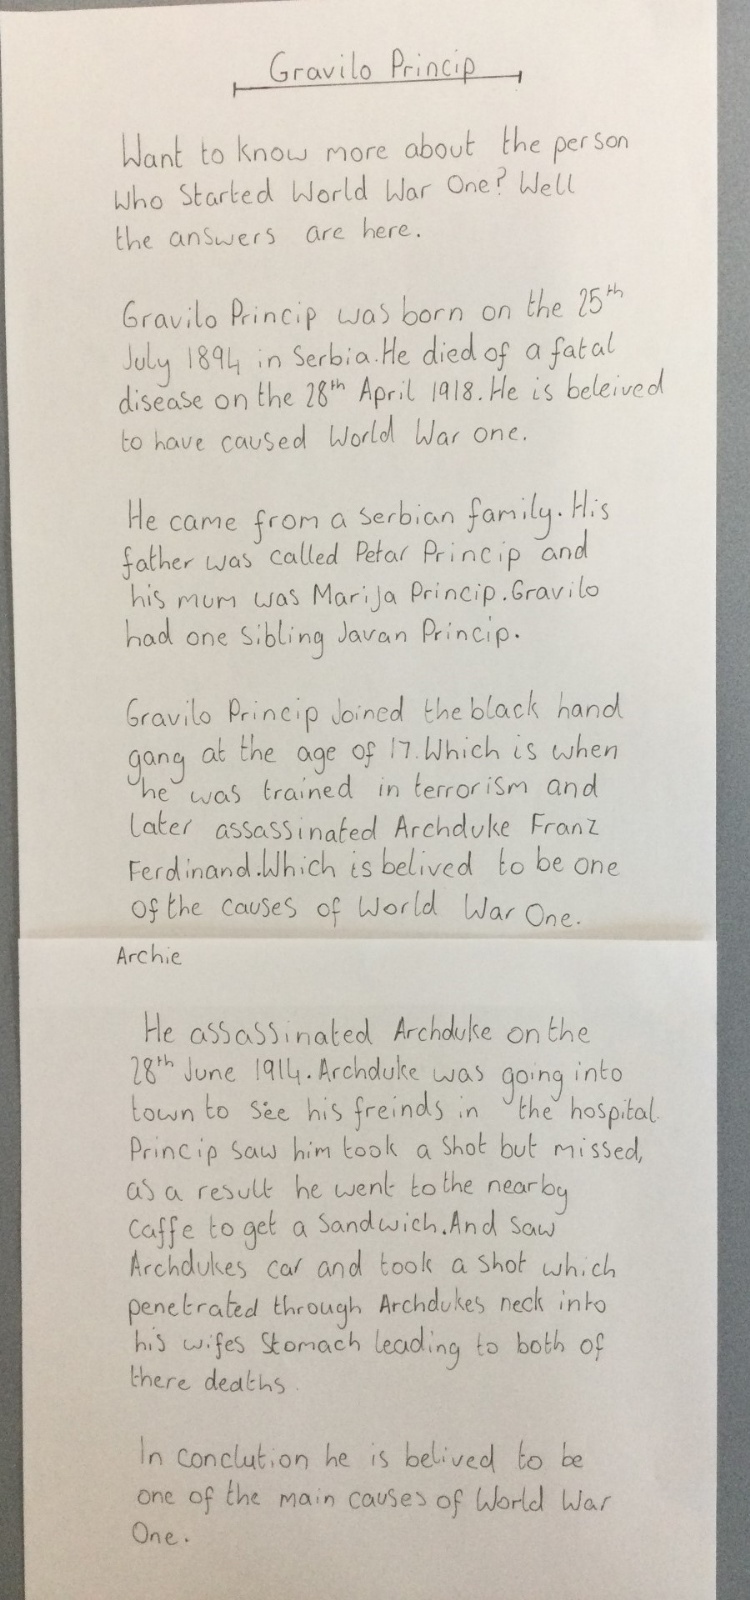 Gravilo Princip
Want to know more about the person
who started World War One? Well
the answers are here.
Gravilo Princip was born on the 25th
July 1894 in Serbia. He died of a fatal
disease on the 28th April 1918. He is beleived
to have caused World War one.
He came from a Serbian family. His
father was called Petar Princip and
his mum was Marija Princip. Gravilo
had one sibling Javan Princip.
Gravilo Princip Joined the black hand
gang at the age of 17. Which is when
he was trained in terrorism and
later assassinated Archduke Franz
Ferdinand. Which is belived to be one
of the causes of World War One.
Archie
He assassinated Archduke on the
28th June 1914. Archduke was going into
town to see his freinds in the hospital.
Princip saw him took a shot but missed,
as a result he went to the nearby
caffe to get a sandwich. And saw
Archdukes car and took a shot which
penetrated through Archdukes neck into
his wifes stomach leading to both of
there deaths.
In conclution he is belived to be
one of the main causes of World War
One.